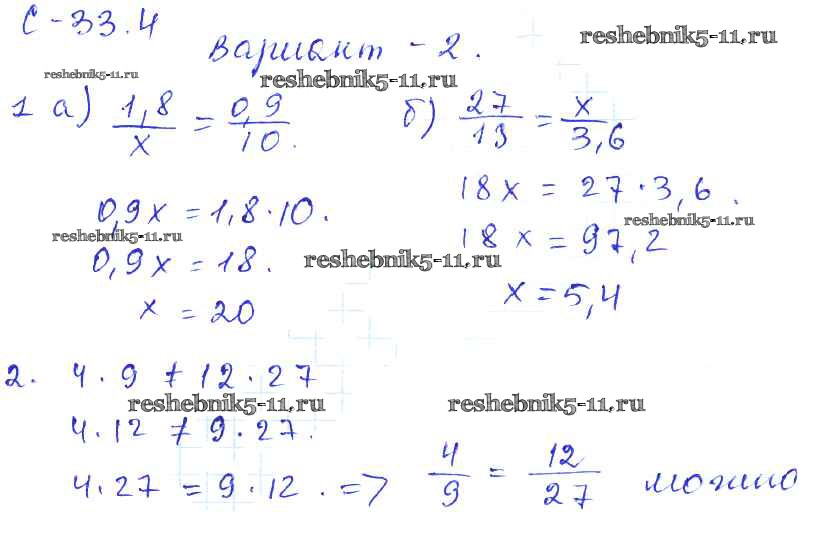 С-33.4
Вариант - 2.
reshebnik5-11.ru
reshebnik5-11.ru
reshebnik5-11.ru
1 а) 1,8/x = 0,9/10.
б) 27/13 = x/3,6
0,9x = 1,8·10.
18x = 27·3,6.
reshebnik5-11.ru
reshebnik5-11.ru
0,9x = 18.
18x = 97,2
reshebnik5-11.ru
x = 20
x = 5,4
2. 4·9 ≠ 12·27
reshebnik5-11.ru
reshebnik5-11.ru
4·12 ≠ 9·27.
4·27 = 9·12. => 4/9 = 12/27 можно